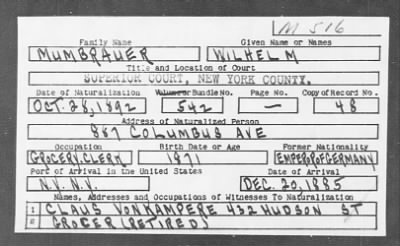 M 516
Family Name Given Name or Names
MUMBRAUER WILHELM
Title and Location of Court
SUPERIOR COURT, NEW YORK COUNTY.
Date of Naturalization Volume or Bundle No. Page No. Copy of Record No.
OCT. 28, 1892 542 — 48
Address of Naturalized Person
887 COLUMBUS AVE
Occupation Birth Date or Age Former Nationality
GROCERY CLERK 1871 EMPEROR OF GERMANY
Port of Arrival in the United States Date of Arrival
N.Y. N.Y. DEC. 20, 1885
Names, Addresses and Occupations of Witnesses To Naturalization
1 CLAUS VONKAMPERE 432 HUDSON ST
2 GROCER (RETIRED)